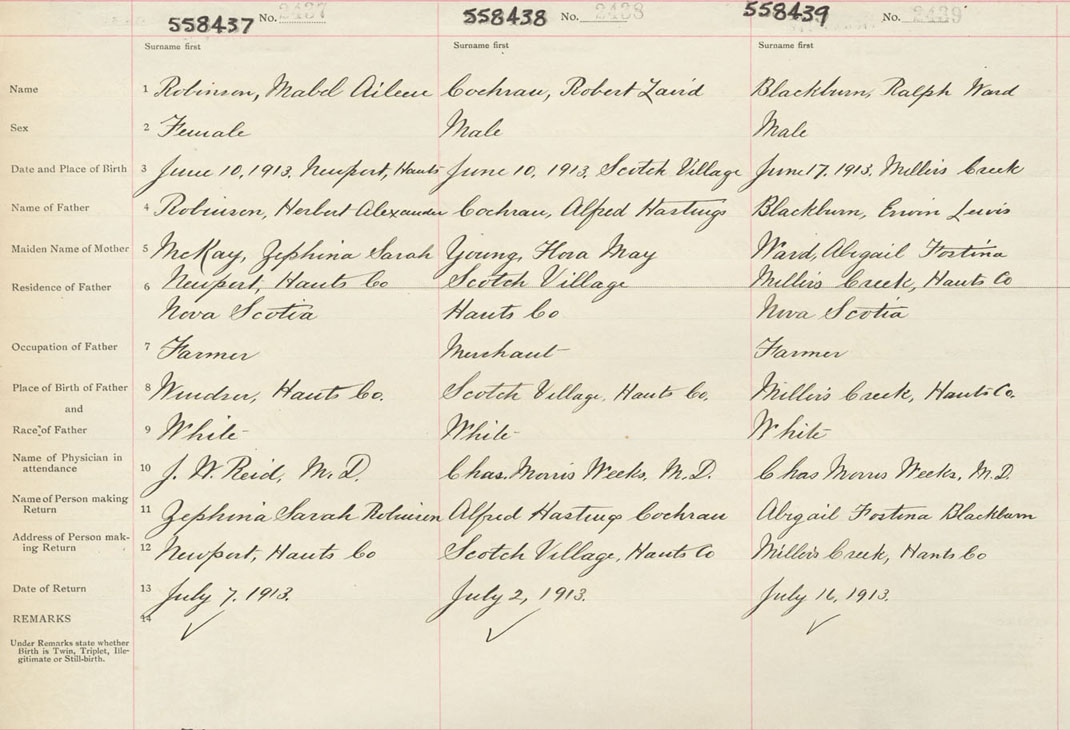 558437 No. 2437 558438 No. 2438 558439 No. 2439
Surname first Surname first Surname first
Name 1 Robinson, Mabel Aileen Cochran, Robert Laird Blackburn, Ralph Ward
Sex 2 Female Male Male
Date and Place of Birth 3 June 10, 1913, Newport, Hants June 10, 1913, Scotch Village June 17, 1913, Millers Creek
Name of Father 4 Robinson, Herbert Alexander Cochran, Alfred Hastings Blackburn, Erwin Lewis
Maiden Name of Mother 5 McKay, Zephina Sarah Young, Flora May Ward, Abigail Fostina
Residence of Father 6 Newport, Hants Co Scotch Village Millers Creek, Hants Co
Nova Scotia Hants Co Nova Scotia
Occupation of Father 7 Farmer Merchant Farmer
Place of Birth of Father 8 Windsor, Hants Co. Scotch Village, Hants Co. Millers Creek, Hants Co.
and
Race of Father 9 White White White
Name of Physician in
attendance 10 J. W. Reid, M.D. Chas. Morris Weeks, M.D. Chas Morris Weeks, M.D.
Name of Person making
Return 11 Zephina Sarah Robinson Alfred Hastings Cochran Abigail Fostina Blackburn
Address of Person mak-
ing Return 12 Newport, Hants Co Scotch Village, Hants Co Millers Creek, Hants Co
Date of Return 13 July 7, 1913. July 2, 1913. July 16, 1913.
REMARKS 14
Under Remarks state whether
Birth is Twin, Triplet, Ille-
gitimate or Still-birth.